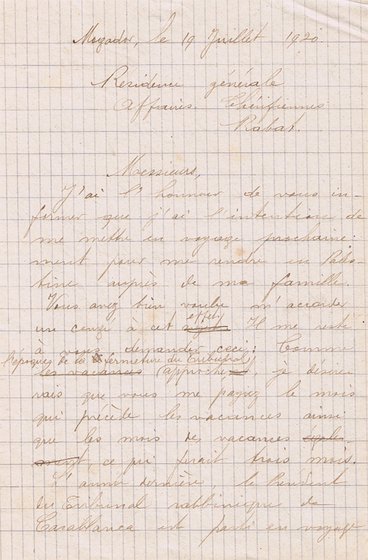 Mogador, le 19 Juillet 1920.
Residence générale
Affaires Chérifiennes
Rabat.
Messieurs,
J'ai l'honneur de vous in-
former que j'ai l'intention de
me mettre en voyage prochaine-
ment pour me rendre en Pales-
tine auprès de ma famille.
Vous avez bien voulu m'accorder
un congé à cet effet. Il me reste
à vous demander ceci: Comme
l'époque de la fermeture du Tribunal
les vacances approche, je désire-
rais que vous me payez le mois
qui précède les vacances ainsi
que les mois des vacances
ce qui ferait trois mois.
L'année dernière, le Président
du Tribunal rabbinique de
Casablanca est parti en voyage